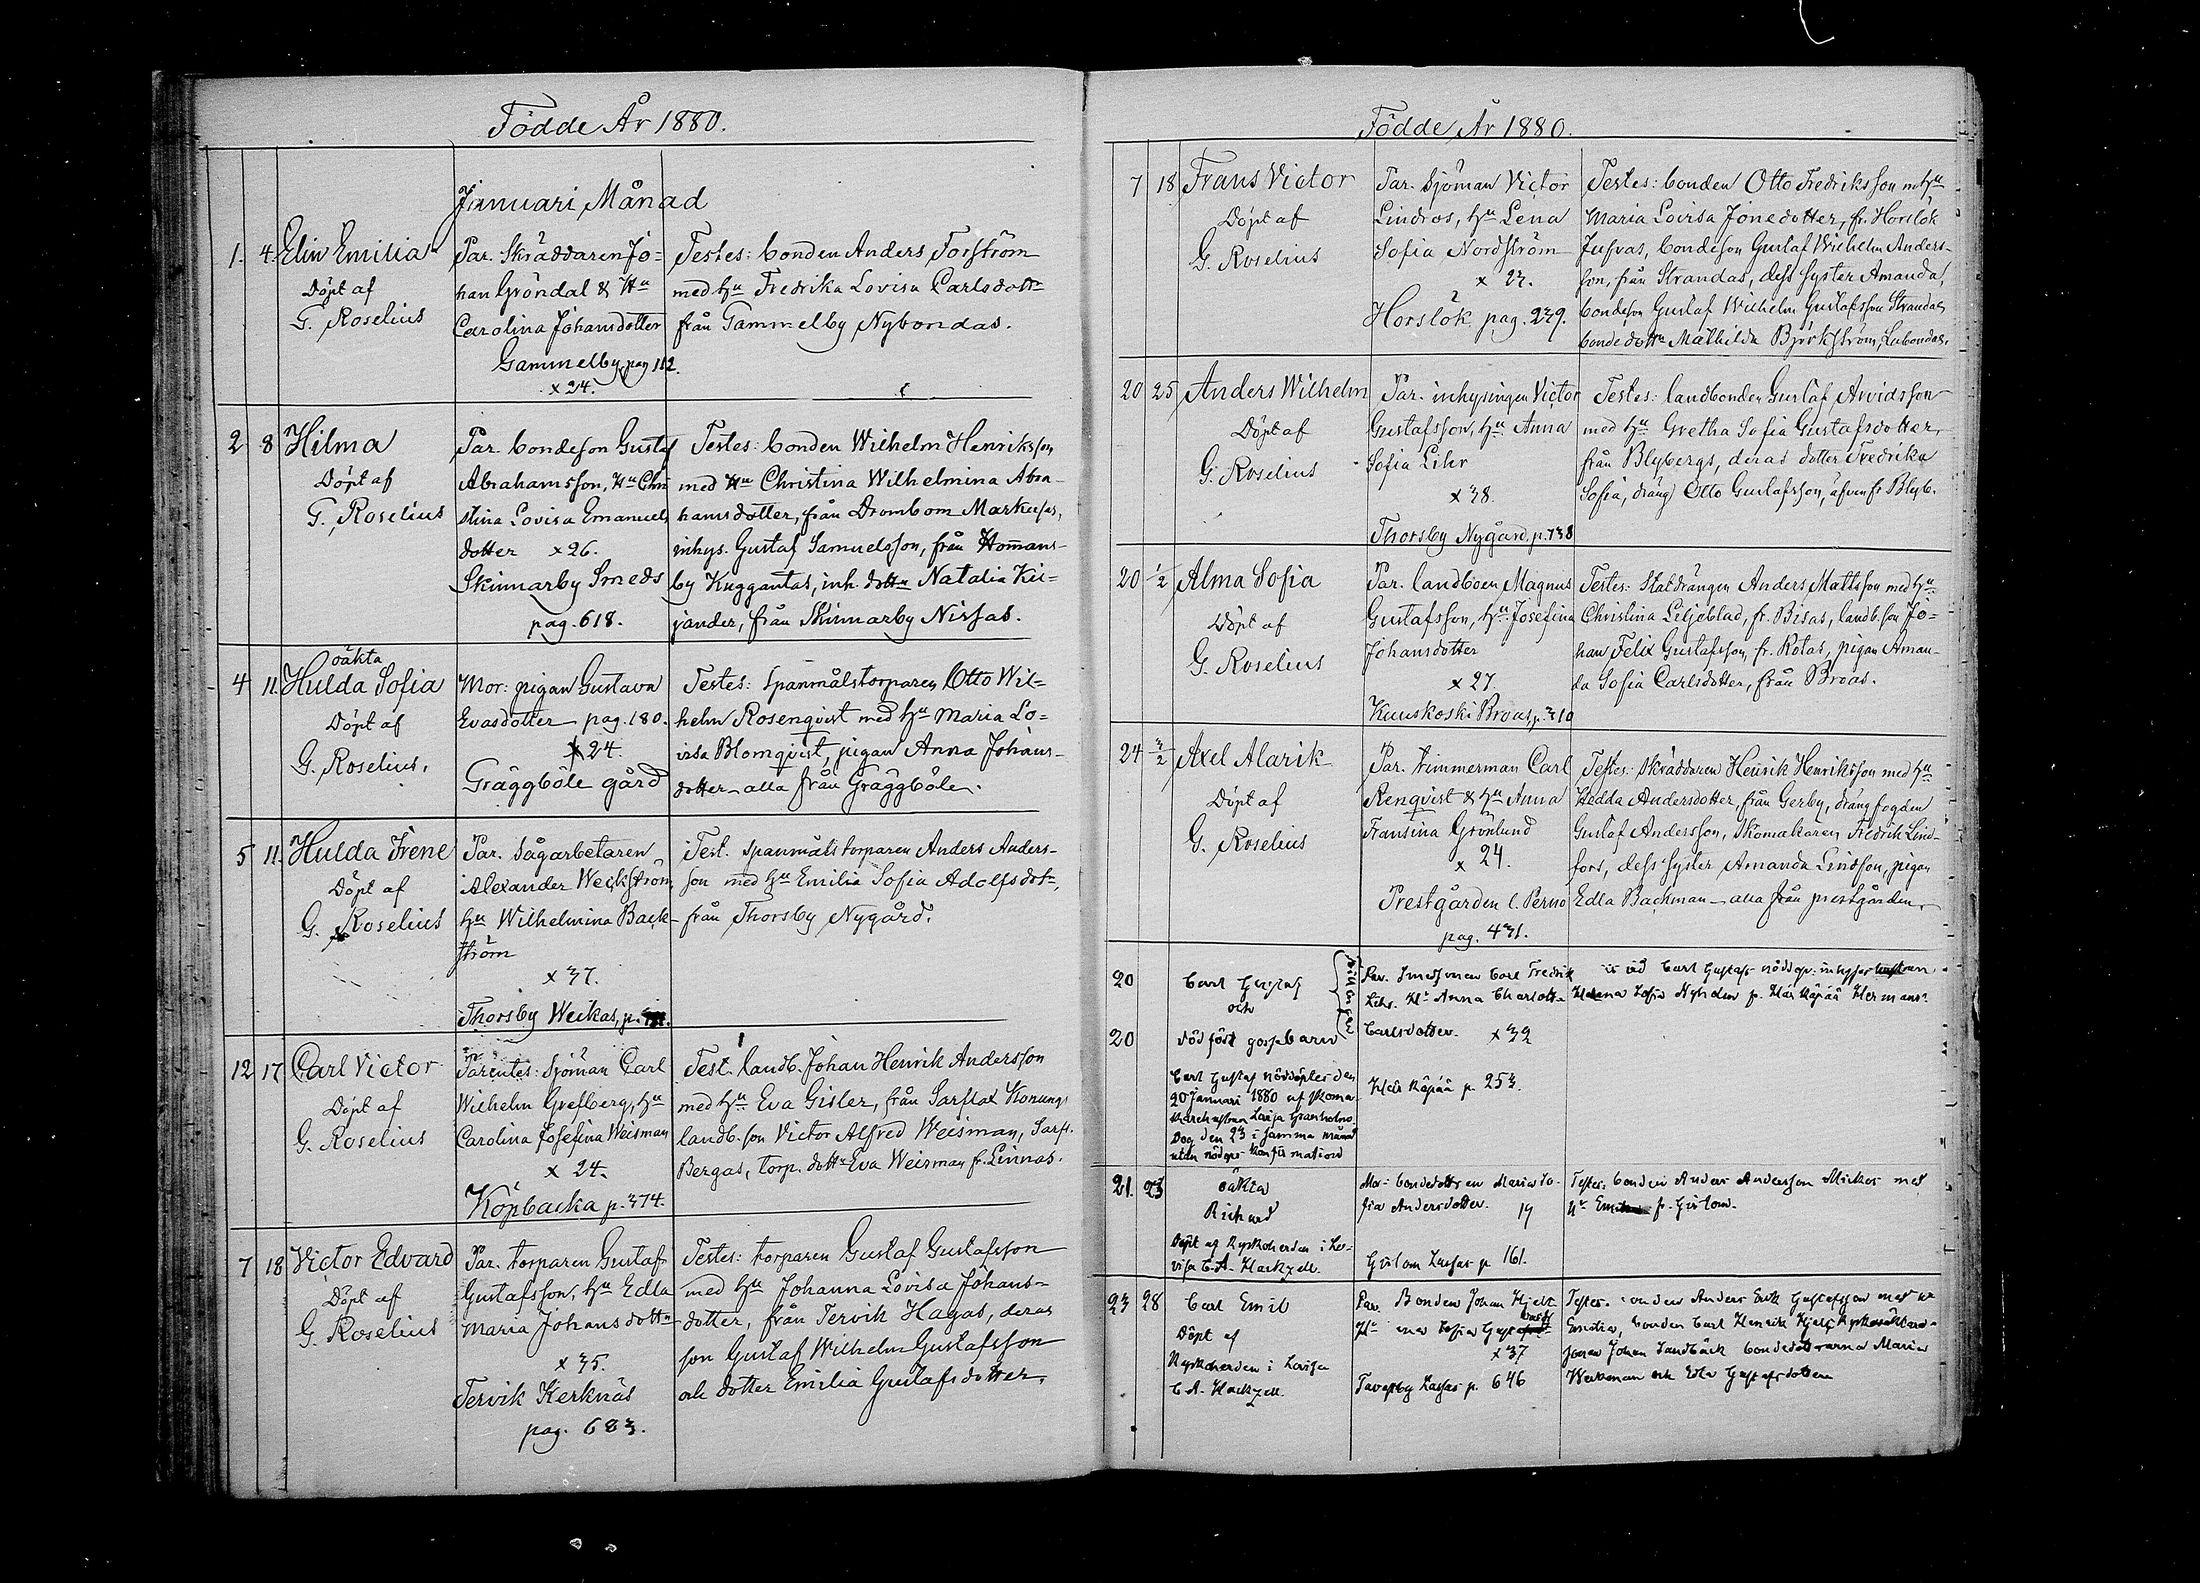 Födde År 1880.
Januari Månad
1. 4. Elin Emilia
Döpt af
G. Roselius
Par. Skräddaren Jo=
han Gröndal & Hu
Carolina Johansdotter
Gammelby, pag 112.
x 24.
Testes: bonden Anders Forström
med hu Fredrika Lovisa Carlsdottr
från Gammelby Nybondas.
2 8 Hilma
Döpt af
G. Roselius
Par. bondeson Gustaf
Abrahamsson, Hu Chri
stina Lovisa Emanuels
dotter x 26.
Skinnarby Smeds
pag. 618.
Testes: bonden Wilhelm Henriksson
med Hu Christina Wilhelmina Abra-
hamsdotter, från Drombom Markusas,
inhys. Gustaf Samuelsson, från Hommans-
by Kuggantas, inh. dottr Natalia Ki-
jander, från Skinnarby Nissas.
oäkta
4 11. Hulda Sofia
Döpt af
G. Roselius.
Mor: pigan Gustava
Evasdotter pag. 180.
x 24.
Gräggböle gård
Testes: Spanmålstorparen Otto Wil=
helm Rosenqvist med hu Maria Lo=
visa Blomqvist, pigan Anna Johans-
dotter alla från Gräggböle.
5 11. Hulda Irene
Döpt af
G. Roselius
Par. Sågarbetaren
Alexander Weckström
hu Wilhelmina Back-
ström
x 37.
Thorsby Weckas, p.
Test. spanmåls torparen Anders Anders-
son med hu Emilia Sofia Adolfsdotr,
från Thorsby Nygård.
12 17 Carl Victor
Döpt af
G. Roselius
Parentes: Sjöman Carl
Wilhelm Grefberg, hu
Carolina Josefina Weisman
x 24.
Köpbacka p. 374.
Test. landb. Johan Henrik Andersson
med hu Eva Gisler, från Sarflax Konungs
landb. son Victor Alfred Weisman, Sarfl.
Bergas, torp. dottr Eva Weisman fr. Linnas.
7 18 Victor Edvard
Döpt af
G. Roselius
Par. torparen Gustaf
Gustafsson, hu Edla
Maria Johansdottr
x 35.
Tervik Kerknäs
pag. 683.
Testes: torparen Gustaf Gustafsson
med hu Johanna Lovisa Johans-
dotter, från Tervik Hagas, deras
son Gustaf Wilhelm Gustafsson
och dotter Emilia Gustafsdotter.
Födde År 1880.
7 18 Frans Victor
Döpt af
G. Roselius
Par. Sjöman Victor
Lindros, hu Lena
Sofia Nordström
x 27.
Horslök pag. 279.
Testes: bonden Otto Fredriksson m hu
Maria Lovisa Jonedotter, fr. Horslök
Jusvas, bondeson Gustaf Wilhelm Anders-
son, från Strandas, dess syster Amanda,
bondeson Gustaf Wilhelm Gustafsson Strandas
bondedottr Mathilda Björkström, Labondas.
20 25 Anders Wilhelm
Döpt af
G. Roselius
Par. inhysingen Victor
Gustafsson, hu Anna
Sofia Lihr
x 38.
Thorsby Nygård, p. 738
Testes: landbonden Gustaf Arvidsson
med hu Gretha Sofia Gustafsdotter,
från Blybergs, deras dotter Fredrika
Sofia, dräng Otto Gustafsson, äfven fr Blyb.
20 1/2 Alma Sofia
Döpt af
G. Roselius
Par. landboen Magnus
Gustafsson, hu Josefina
Johansdotter
x 27.
Kuuskoski Broas, p. 310
Testes: Staldrängen Anders Mattsson med hu
Christina Liljeblad, fr. Bisas, landb. son Jo-
han Felix Gustafsson, fr. Rotas, pigan Aman-
da Sofia Carlsdotter, från Broas.
24 3/2 Axel Alarik
Döpt af
G. Roselius
Par. timmerman Carl
Renqvist & hu Anna
Fransina Grönlund
x 24.
Prestgården l. Perno
pag. 431.
Testes: Skräddaren Henrik Henriksson med hu
Hedda Andersdotter, från Gerby, drängfogden
Gustaf Andersson, skomakaren Fredrik Lind-
fors, dess syster Amanda Lindfors, pigan
Edla Backman alla från prestgården.
20 Carl Gustaf
och
20 dödfödt gossebarn
Carl Gustaf nöddöptes den
20 Januari 1880 af
Lovisa Granholm
Dog den 23 i samma månad
utan nöddops konfirmation
Par. Carl Fredrik
Lihr. Hu Anna Charlotta
Carlsdotter. x 39
Härkäpää p. 253.
vid Carl Gustafs nöddop:
Sofia Nyholm fr. Härkäpää Hermans.
21. 23 oäkta
Richard
Döpt af Kyrkoherden i Lo-
visa C. A. Hackzell.
Mor: bondedottren Maria So-
fia Andersdotter. 19
Gislom Lassas p 161.
Testes: bonden Anders Andersson Mickos med
hu fr. Gislom.
23 28 Carl Emil
Döpt af
Kyrkoherden i Lovisa
C. A. Hackzell
Par. Bonden Johan Hjelt
Hu Sofia
x 37
Tavastby Lassas p. 646
Testes. bonden Anders Erik Gustafsson med hu
Emilia, bonden Carl Henrik Hjelt,
Johan Sandbäck bondedöttrarna Maria
Weckman och Edla Gustafsdotter